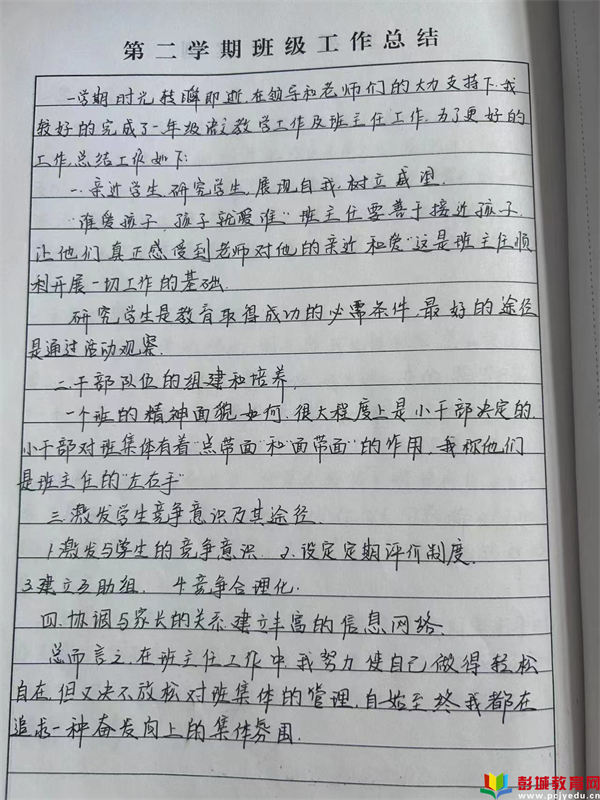 第二学期班级工作总结
一学期时光转瞬即逝,在领导和老师们的大力支持下,我
较好的完成了一年级语文教学工作及班主任工作,为了更好的
工作,总结汇报如下:
一.亲近学生,研究学生,展现自我,树立威望.
"谁爱孩子,孩子就爱谁"班主任要善于接近孩子,
让他们真正感受到老师对他的亲近和爱"这是班主任顺
利开展一切工作的基础.
研究学生是教育取得成功的必需条件,最好的途径
是通过活动观察.
二.干部队伍的组建和培养,
一个班的精神面貌如何,很大程度上是小干部决定的,
小干部对班集体有着"点带面"和"面带面"的作用,我称他们
是班主任的"左右手"
三.激发学生竞争意识及其途径.
1.激发与学生的竞争意识. 2.设定定期评价制度.
3.建立互助组. 4.竞争合理化.
四.协调与家长的关系,建立丰富的信息网络.
总而言之,在班主任工作中,我努力使自己做得轻松
自在,但又决不放松对班集体的管理,自始至终我都在
追求一种奋发向上的集体氛围.
彭城教育网
www.pcjyedu.cn